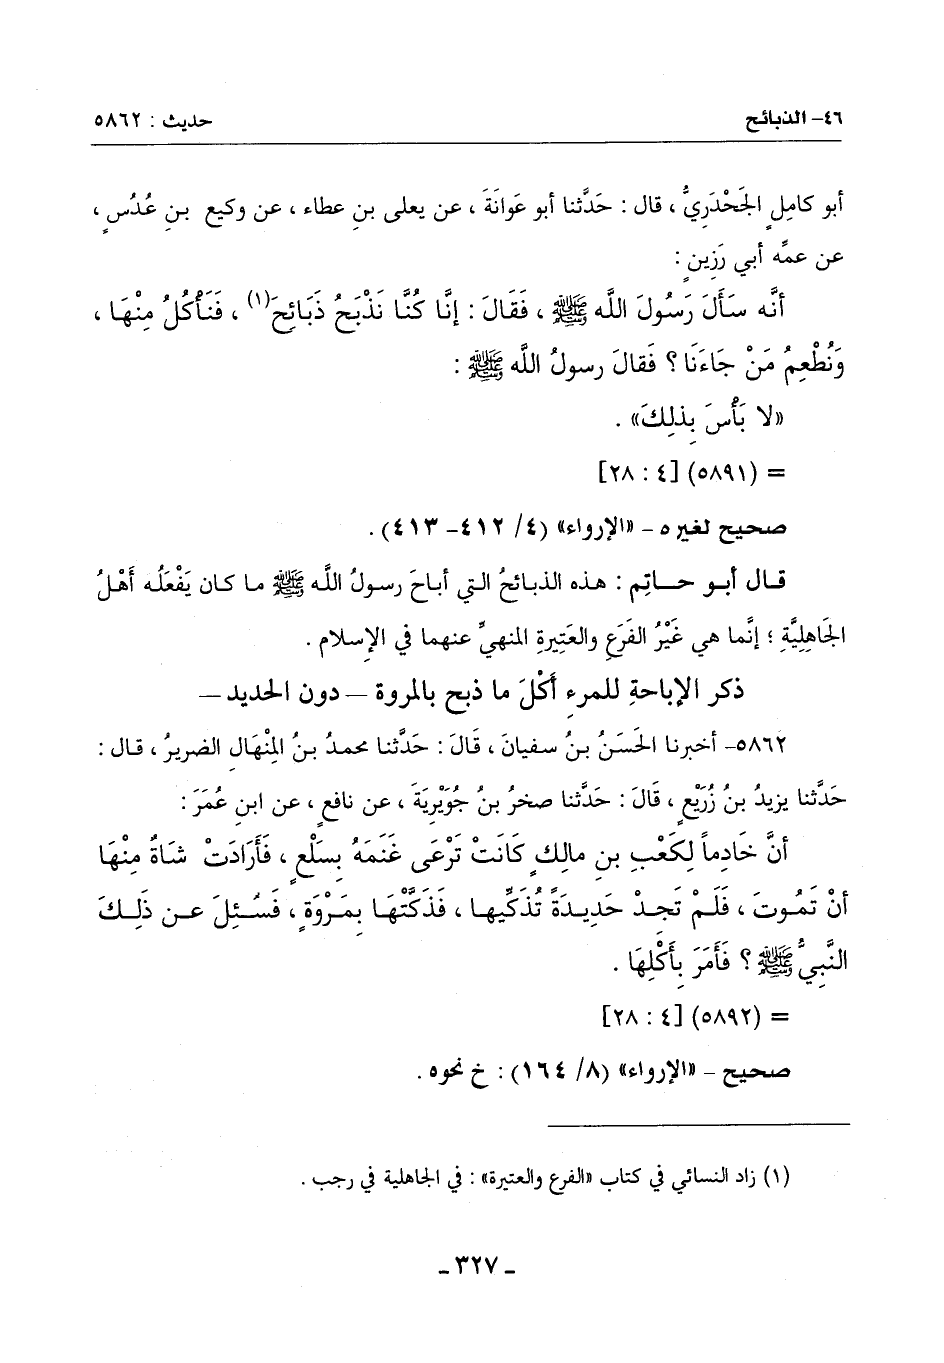 ٤٦- الذبائح حديث : ٥٨٦٢
أبو كامِلٍ الجَحْدَرِيُّ ، قال : حَدَّثنا أبو عَوانَةَ ، عن يعلى بنِ عطاء ، عن وكيع بنِ عُدُسٍ ،
عن عمَّه أبي رَزِينٍ :
أنَّه سَأَلَ رَسُولَ اللَّه ﷺ ، فَقَالَ : إنَّا كُنَّا نَذْبَحُ ذَبَائِحَ(١) ، فَنَأْكُلُ مِنْهَا ،
وَنُطْعِمُ مَنْ جَاءَنَا ؟ فَقالَ رسولُ اللَّه ﷺ :
«لا بَأْسَ بِذلِكَ» .
= (٥٨٩١) [٤ : ٢٨]
صحيح لغيره - «الإرواء» (٤/ ٤١٢- ٤١٣) .
قال أبو حاتِم : هذه الذبائحُ التي أباحَ رسولُ اللَّه ﷺ ما كان يَفْعَلُه أَهْلُ
الجَاهِلِيَّةِ ؛ إنَّما هي غَيْرُ الفَرَعِ والعَتِيرةِ المنهيِّ عنهما في الإسلام .
ذكر الإباحةِ للمرءِ أَكْلَ ما ذبح بالمروة – دون الحديد –
٥٨٦٢- أخبرنا الحَسَنُ بنُ سفيانَ ، قَالَ : حَدَّثنا محمدُ بنُ المِنْهَالِ الضريرُ ، قال :
حَدَّثنا يزيدُ بنُ زُرَيْعٍ ، قَالَ : حَدَّثنا صخرُ بنُ جُوَيْرِيَةَ ، عن نافعٍ ، عن ابنِ عُمَرَ :
أنَّ خَادِماً لِكَعْبِ بنِ مالِكٍ كَانَتْ تَرْعَى غَنَمَهُ بِسَلْعٍ ، فَأَرَادَتْ شَاةٌ مِنْهَا
أنْ تَمُوتَ ، فَلَمْ تَجِدْ حَدِيدَةً تُذَكِّيها ، فَذَكَّتْهَا بِمَرْوَةٍ ، فَسُئِلَ عن ذَلِكَ
النَّبِيُّ ﷺ ؟ فَأَمَرَ بِأَكْلِهَا .
= (٥٨٩٢) [٤ : ٢٨]
صحيح - «الإرواء» (٨/ ١٦٤) : خ نحوه .
(١) زاد النسائي في كتاب «الفرع والعتيرة» : في الجاهلية في رجب .
- ٣٢٧ -